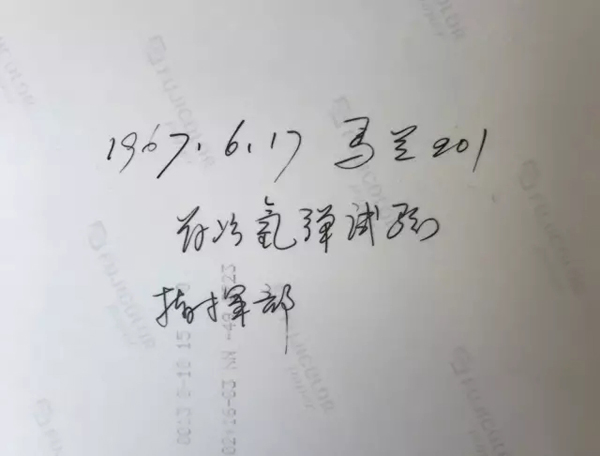 1967.6.17 马兰201
首次氢弹试验
指挥部
FUJICOLOR
paper